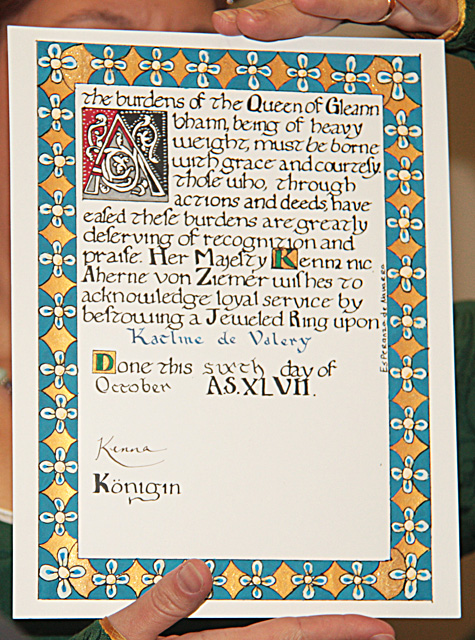 the burdens of the Queen of Gleann
Abhann, being of heavy
weight, must be borne
with grace and courtesy.
Those who, through
actions and deeds, have
eased these burdens are greatly
deserving of recognition and
praise. Her Majesty Kenna nic
Aherne von Ziemer wishes to
acknowledge loyal service by
bestowing a Jeweled Ring upon
Katline de Valery
Done this sixth day of
October A.S.XLVII.
Kenna
Königin
Esperanza de